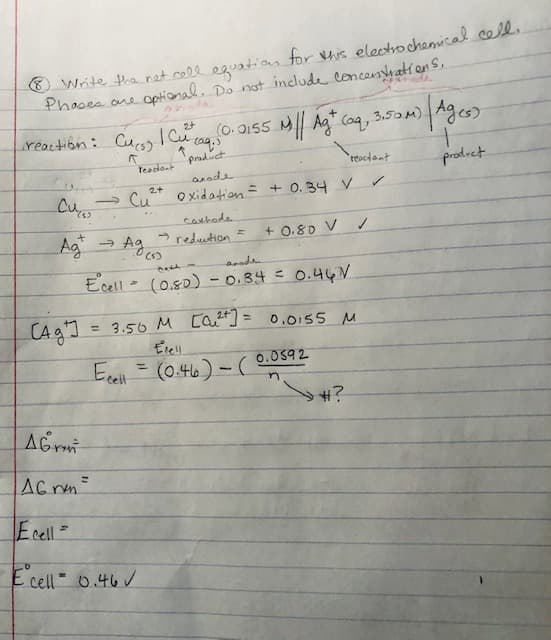 ⑧ Write the net cell equation for this electrochemical cell.
Phases are optional. Do not include concentrations.
anode
cathode
reaction: Cu(s) | Cu²⁺(aq,) (0.0155 M || Ag⁺ (aq, 3.50M) | Ag(s)
reactant product reactant product
anode
Cu(s) → Cu²⁺ oxidation = + 0.34 V ✓
cathode
Ag⁺ → Ag(s) → reduction = + 0.80 V ✓
cath - anode
E°cell = (0.80) - 0.34 = 0.46 V
[Ag⁺] = 3.50 M [Cu²⁺] = 0.0155 M
E°cell
Ecell = (0.46) - ( 0.0592
n
→ #?
ΔG°rxn =
ΔG rxn =
Ecell =
E°cell = 0.46 ✓